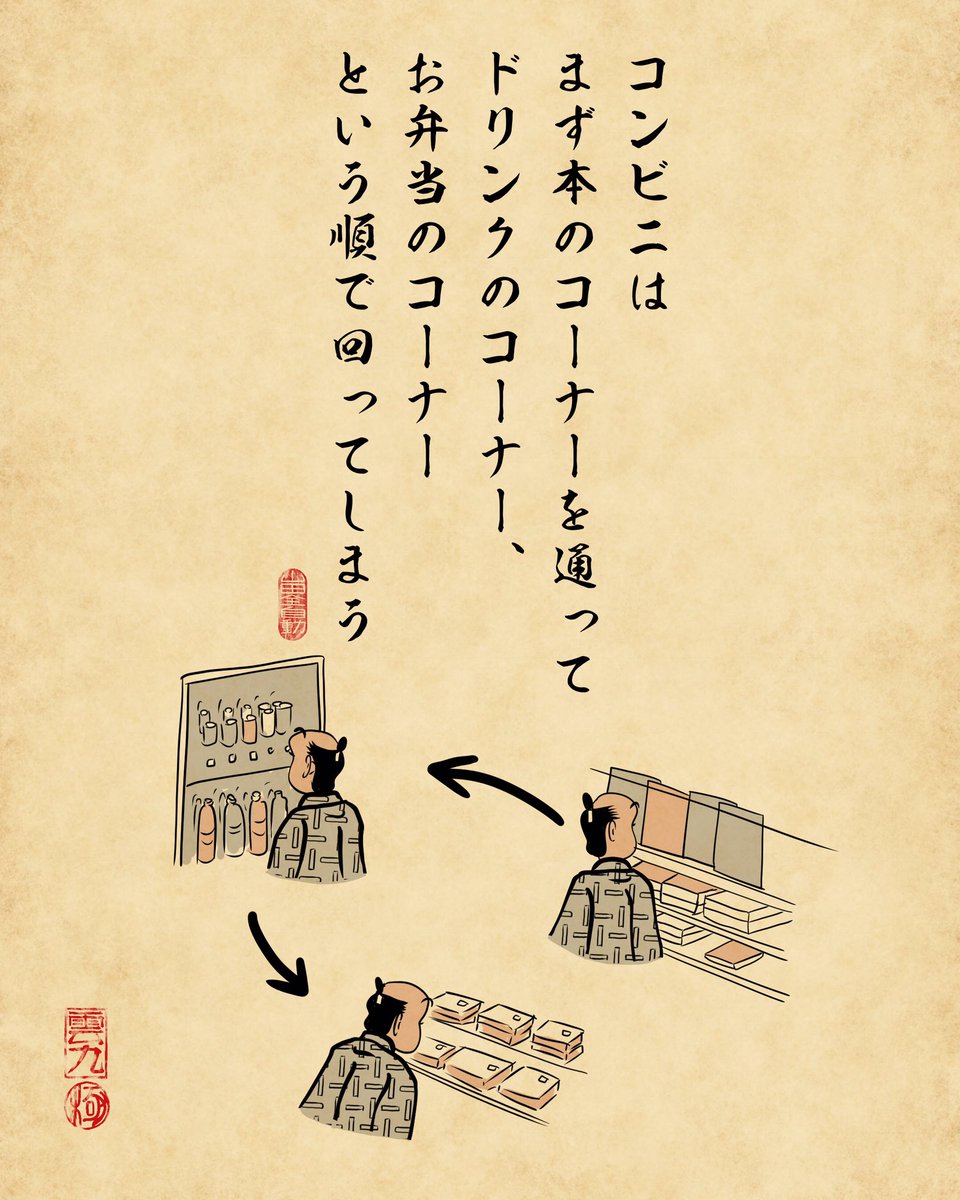 コンビニは
まず本のコーナーを通って
ドリンクのコーナー、
お弁当のコーナー
という順で回ってしまう
雲九